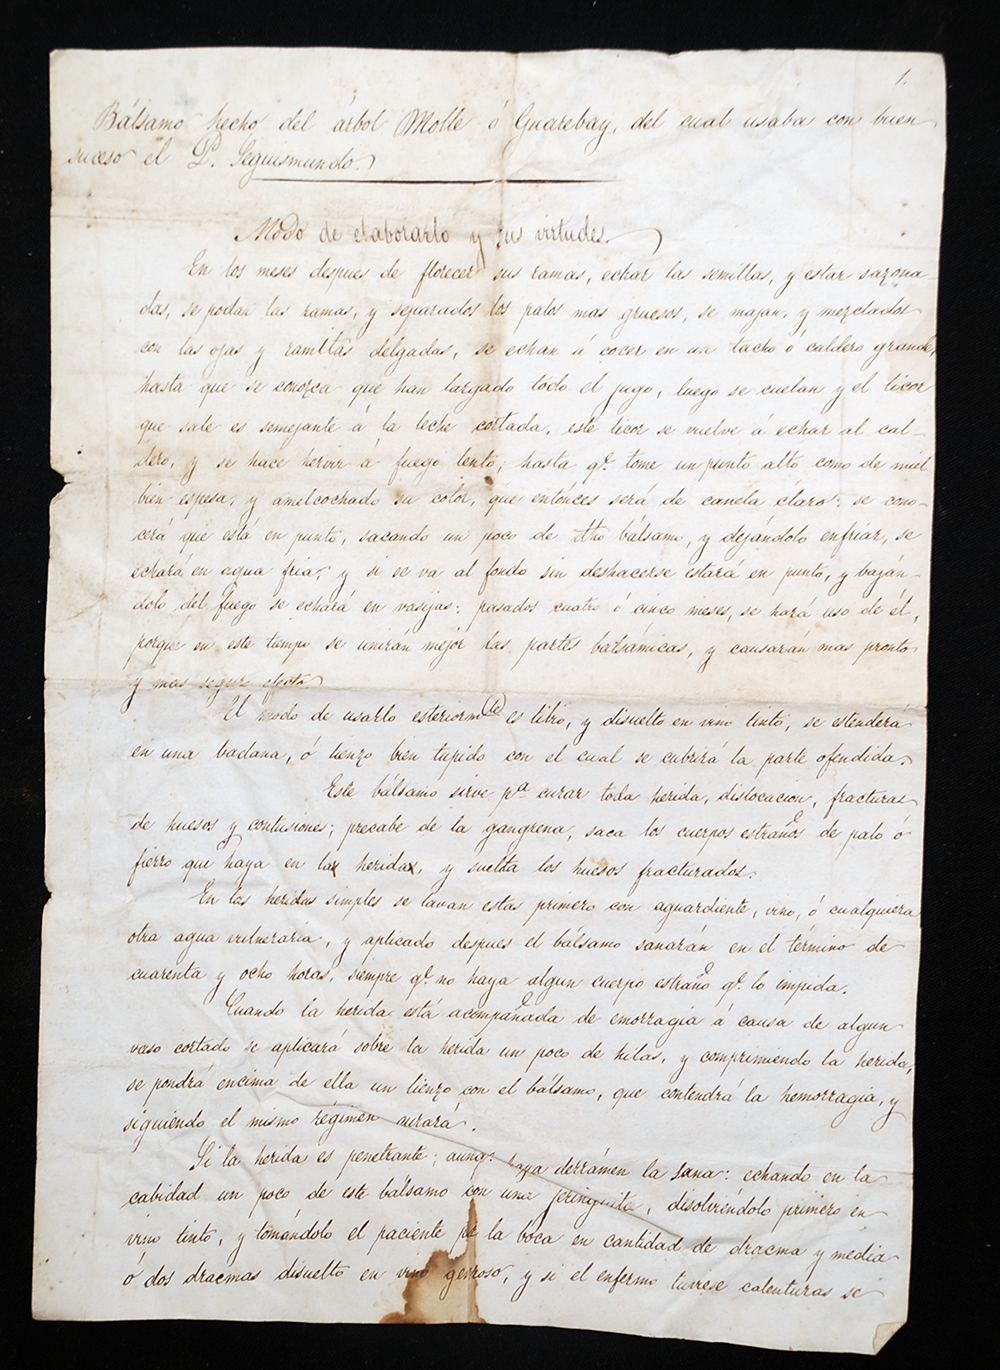 1.
Bálsamo hecho del árbol Molle ó Guarebay, del cual usaba con buen
suceso el P. Seguismundo.
Modo de elaborarlo y sus virtudes.
En los meses despues de florecer sus ramas, echar las semillas, y estar sazona
das, se podan las ramas, y separados los palos mas gruesos, se majan, y mezclados
con las ojas y ramitas delgadas, se echan á cocer en un tacho o caldero grande,
hasta que se conozca que han largado todo el jugo, luego se cuelan y el licor
que sale es semejante á la leche cortada, este licor se vuelve á echar al cal-
dero, y se hace hervir á fuego lento, hasta qe. tome un punto alto como de miel
bien espesa, y amelcochado su color, que entónces será de canela claro: se cono-
cerá que está en punto, sacando un poco de dho bálsamo, y dejándolo enfriar, se
echará en agua fria, y si se va al fondo sin deshacerse estará en punto, y baján-
dolo del fuego se echará en vasijas: pasados cuatro ó cinco meses, se hará uso de él,
porque en este tiempo se unirán mejor las partes balsámicas, y causarán mas pronto
y mas seguro efecto
El modo de usarlo esteriormte es tibio, y disuelto en vino tinto, se estenderá
en una badana, ó lienzo bien tupido con el cual se cubrirá la parte ofendida.
Este bálsamo sirve pa curar toda herida, dislocacion, fracturas
de huesos y contusiones; precabe de la gangrena, saca los cuerpos estraños de palo ó
fierro que haya en la herida, y suelta los huesos fracturados.
En las heridas simples se lavan estas primero con aguardiente, vino, ó cualquiera
otra agua vulneraria, y aplicado despues el bálsamo sanarán en el término de
cuarenta y ocho horas, siempre qe. no haya algun cuerpo estraño qe. lo impida.
Cuando la herida está acompañada de emorragia á causa de algun
vaso cortado se aplicará sobre la herida un poco de hilas, y comprimiendo la herida,
se pondrá encima de ella un lienzo con el bálsamo, que contendrá la hemorragia, y
siguiendo el mismo régimen curará.
Si la herida es penetrante; aunq: haya derrámen la sana: echando en la
cabidad un poco de este bálsamo con una jeringuita, disolviéndolo primero en
vino tinto, y tomándolo el paciente pr la boca en cantidad de dracma y media
ó dos dracmas disuelto en vino generoso, y si el enfermo tuviese calenturas se